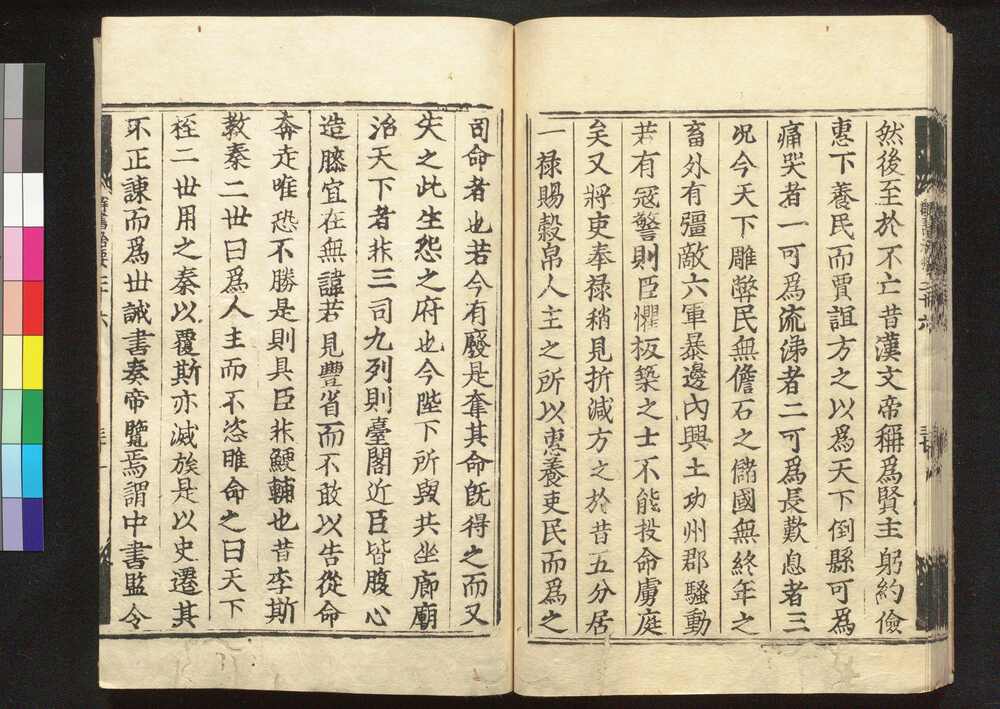 然後至於不亡昔漢文帝稱爲賢主躬約儉
惠下養民而賈誼方之以爲天下倒縣可爲
痛哭者一可爲流涕者二可爲長歎息者三
况今天下雕弊民無儋石之儲國無終年之
畜外有彊敵六軍暴邊內興土功州郡騷動
若有寇警則臣懼板築之士不能投命虜庭
矣又將吏奉禄稍見折減方之於昔五分居
一禄賜穀帛人主之所以惠養吏民而爲之
司命者也若今有廢是奪其命旣得之而又
失之此生怨之府也今陛下所與共坐廊廟
治天下者非三司九列則臺閣近臣皆腹心
造膝宜在無諱若見豐省而不敢以告從命
奔走唯恐不勝是則具臣非鯁輔也昔李斯
教秦二世曰爲人主而不恣睢命之曰天下
桎二世用之秦以覆斯亦滅族是以史遷其
不正諫而爲世誡書奏帝覽焉謂中書監令
群書治要二十六